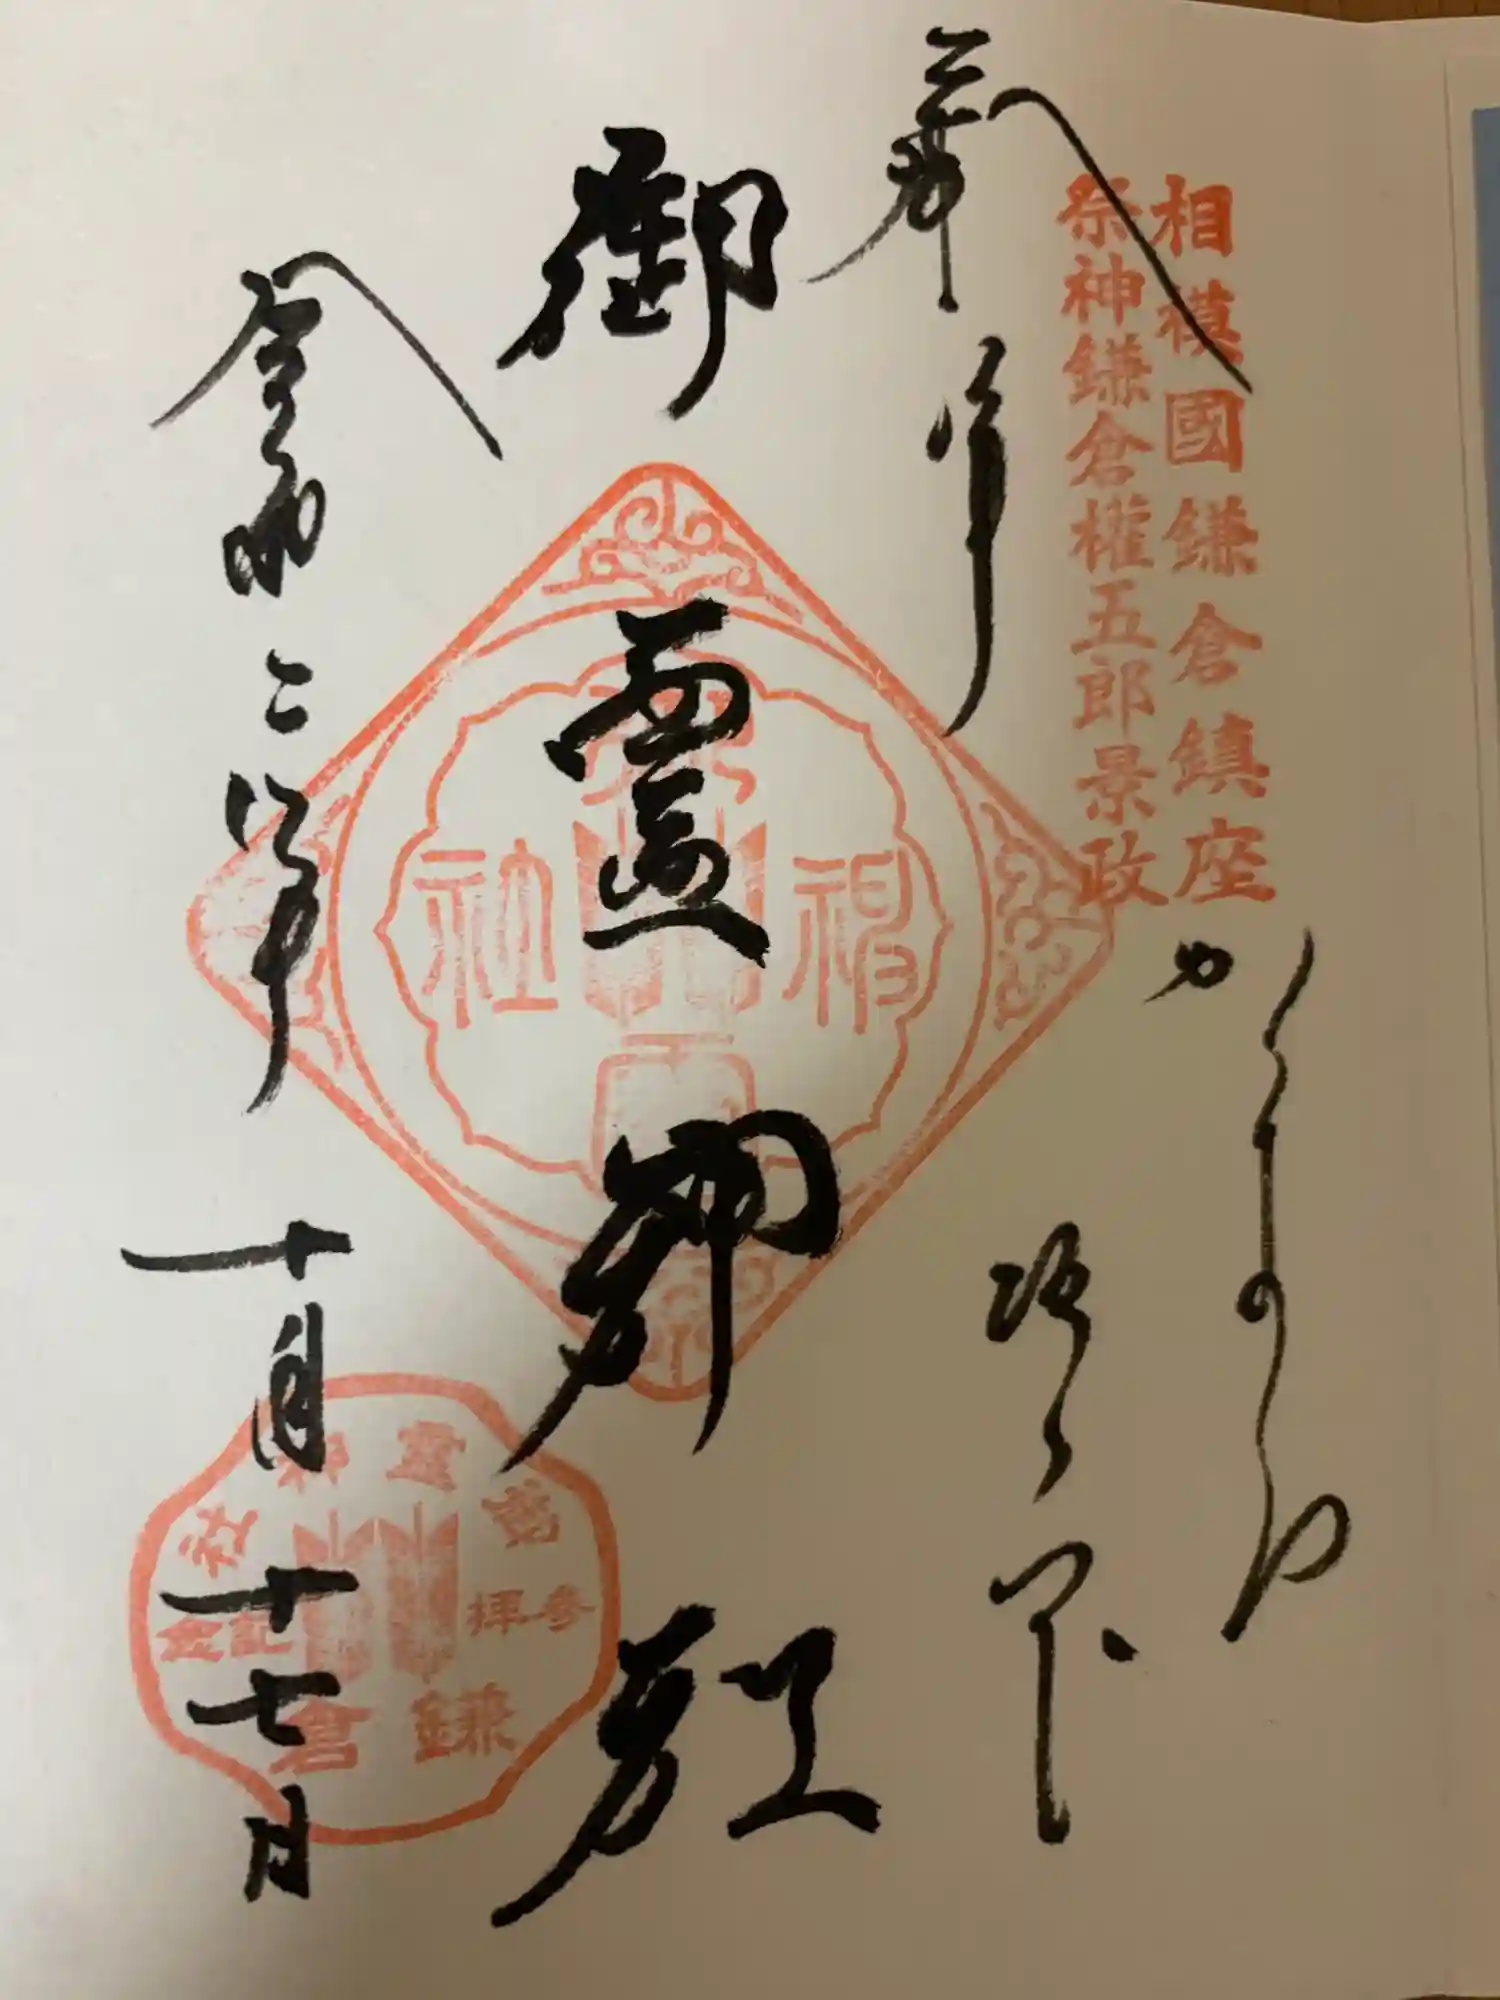 相模國鎌倉鎮座
祭神鎌倉權五郎景政
奉拝
かまくら
坂ノ下
御霊神社
令和二年
十月
十七日
御霊神社
参拝記念
鎌倉